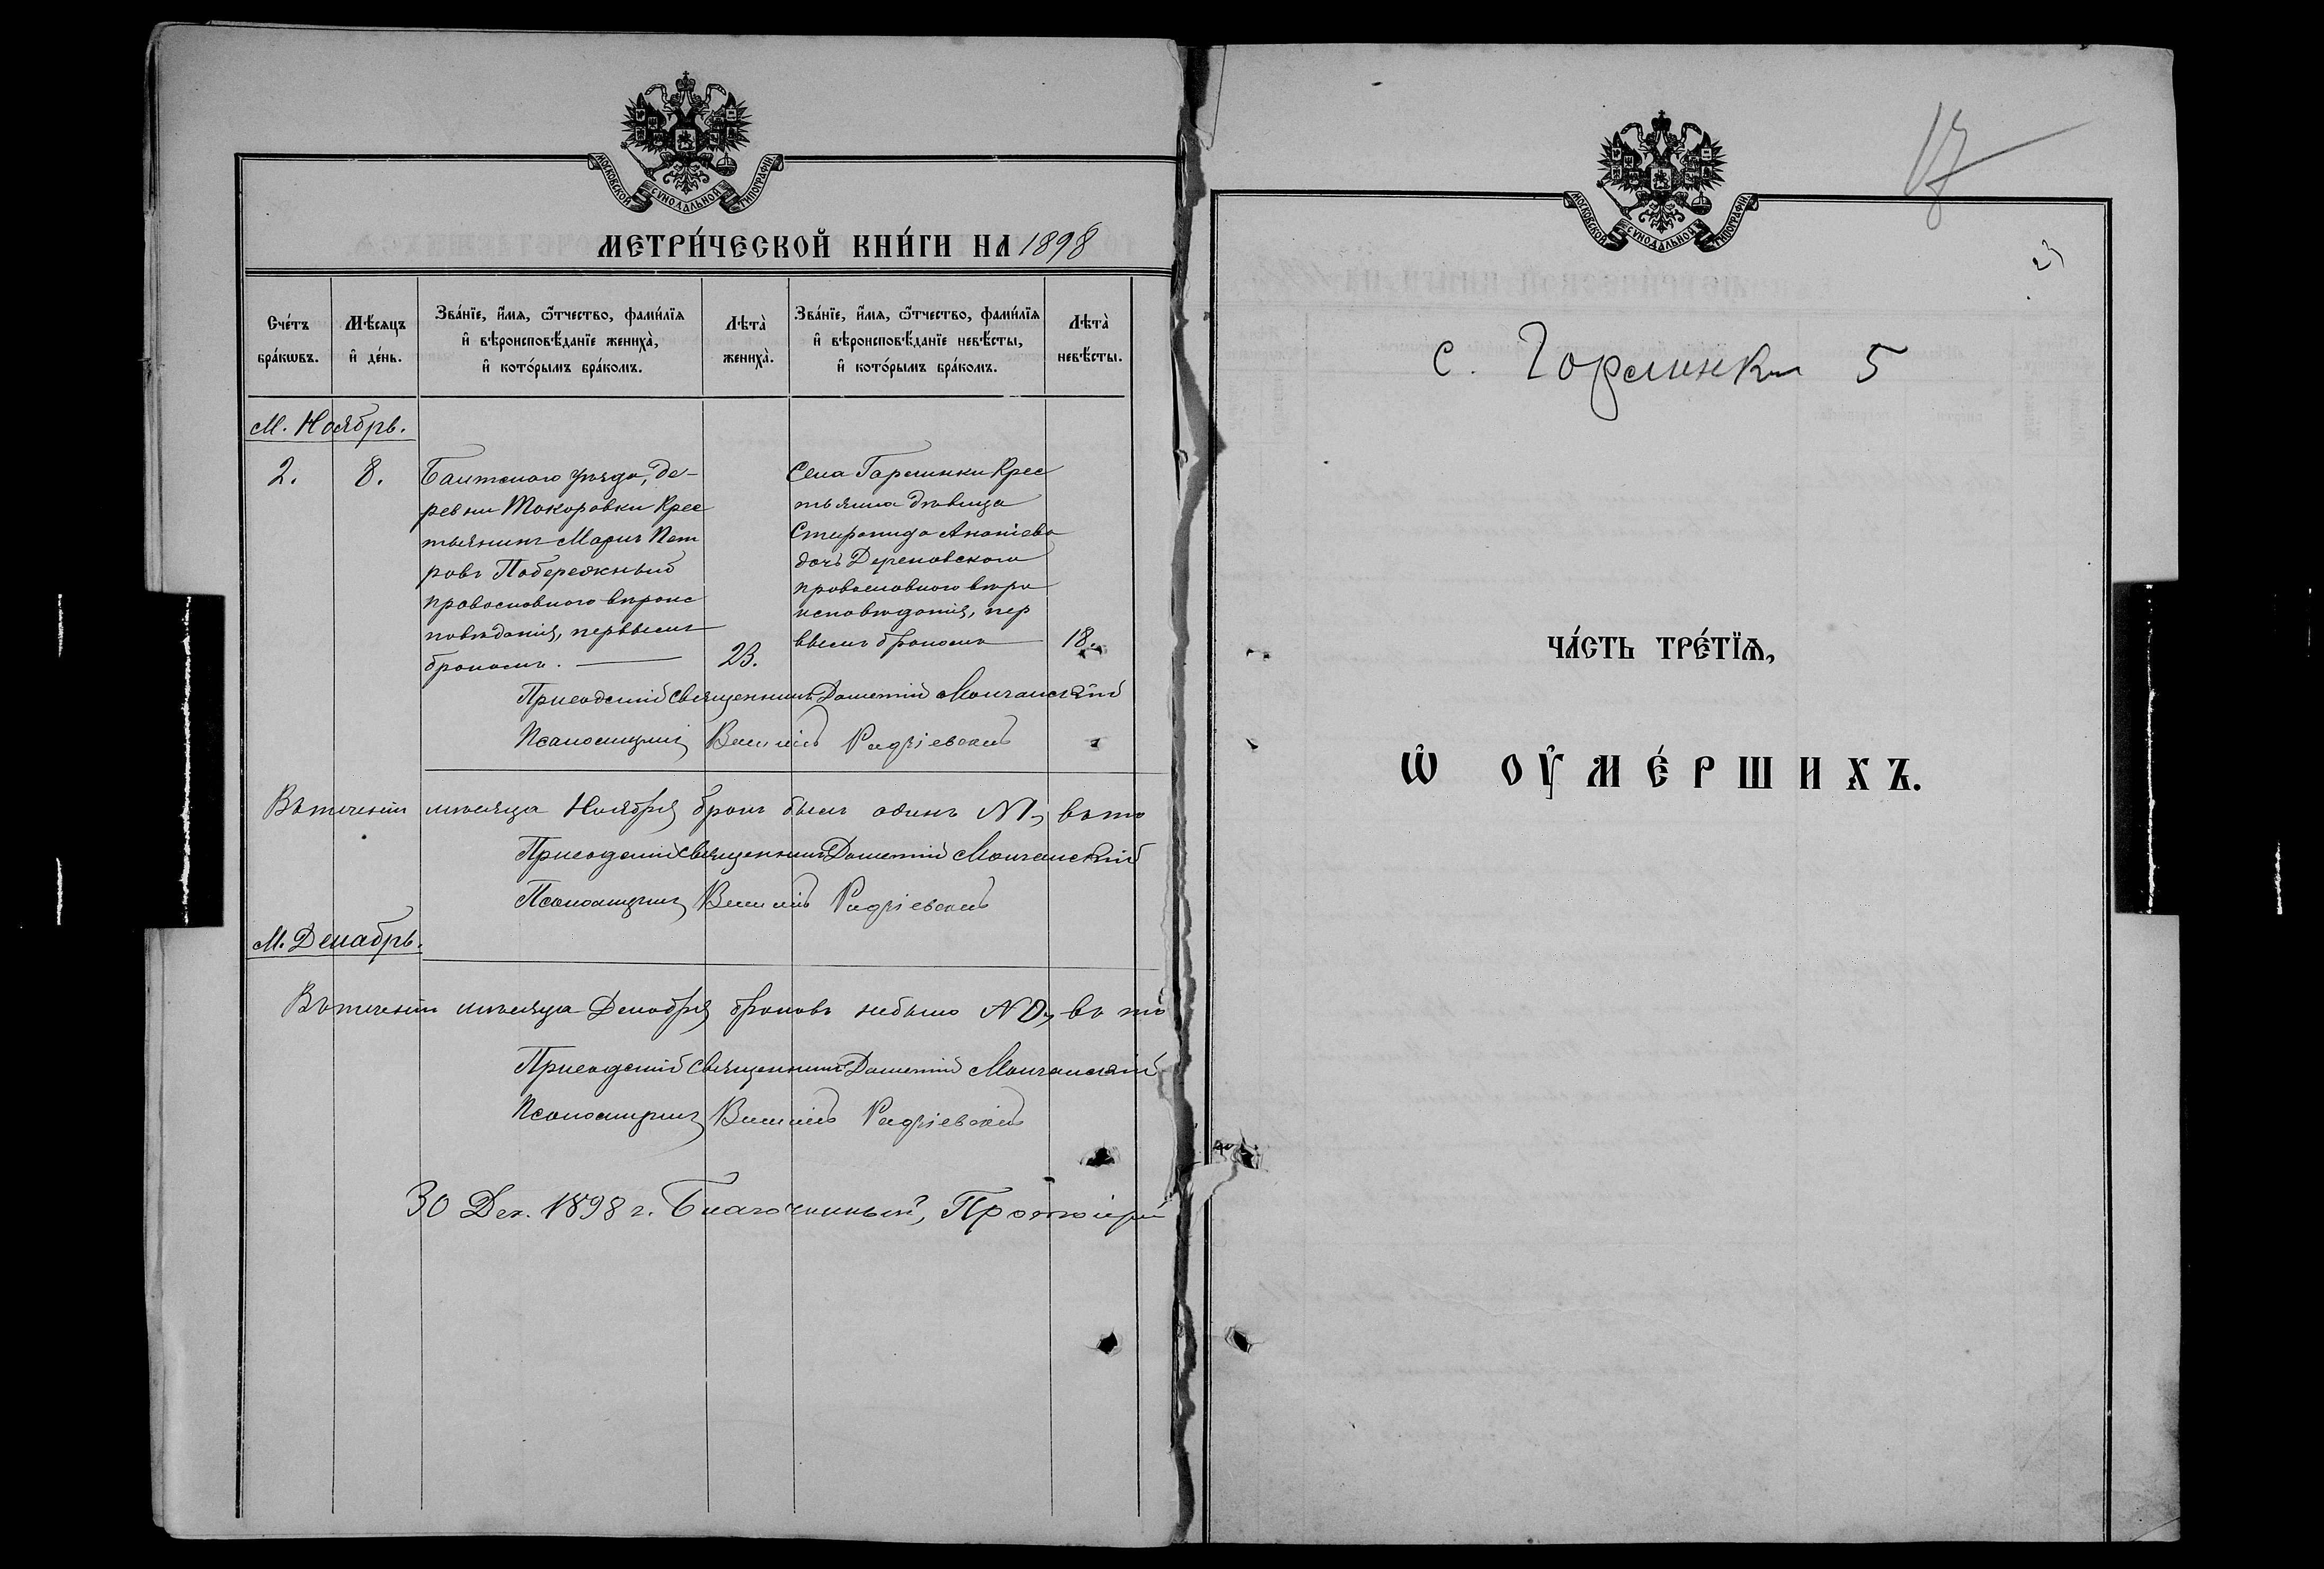 МОСКОВСКОЙ СѴНОДАЛЬНОЙ ТИПОГРАФІИ
МЕТРИ́ЧЕСКОЙ КНИ́ГИ НА 1898
Сче́тъ бра́кωвъ.
Мѣ́сяцъ и҆ де́нь.
Зва́нїе, и҆́мѧ, ѻ҆́тчество, фами́лїѧ
и҆ вѣроисповѣ́данїе женихà,
и҆ кото́рымъ бра́комъ.
Лѣтà женихà.
Зва́нїе, и҆́мѧ, ѻ҆́тчество, фами́лїѧ
и҆ вѣроисповѣ́данїе невѣ́сты,
и҆ кото́рымъ бра́комъ.
Лѣтà невѣ́сты.
М. Ноябрь.
2.
8.
Балтского уѣзда, де-
ревни Токоровки Крес
тьянинъ Маркъ Пет
ровъ Побережный
православного вѣроис
повѣданія, первымъ
бракомъ.
23.
Села Гармики Крес
тьянка дѣвица
Ананіева
дочь
православного вѣро
исповѣданія, пер
вымъ бракомъ
18.
Приходскій Священникъ Дометій Молчанскій
Псаломщикъ
Въ теченіи мѣсяца Ноября бракъ былъ одинъ №1, въ то
Приходскій Священникъ Дометій Молчанскій
Псаломщикъ
М. Декабрь.
Въ теченіи мѣсяца Декабря браковъ небыло №0, въ то
Приходскій Священникъ Дометій Молчанскій
Псаломщикъ
30 Дек. 1898 г. Благочинный, Протоіерей
МОСКОВСКОЙ СѴНОДАЛЬНОЙ ТИПОГРАФІИ
с. 5
ЧА́СТЬ ТРЕ́ТЇѦ,
Ѽ ОУ҆МЕ́РШИХЪ.